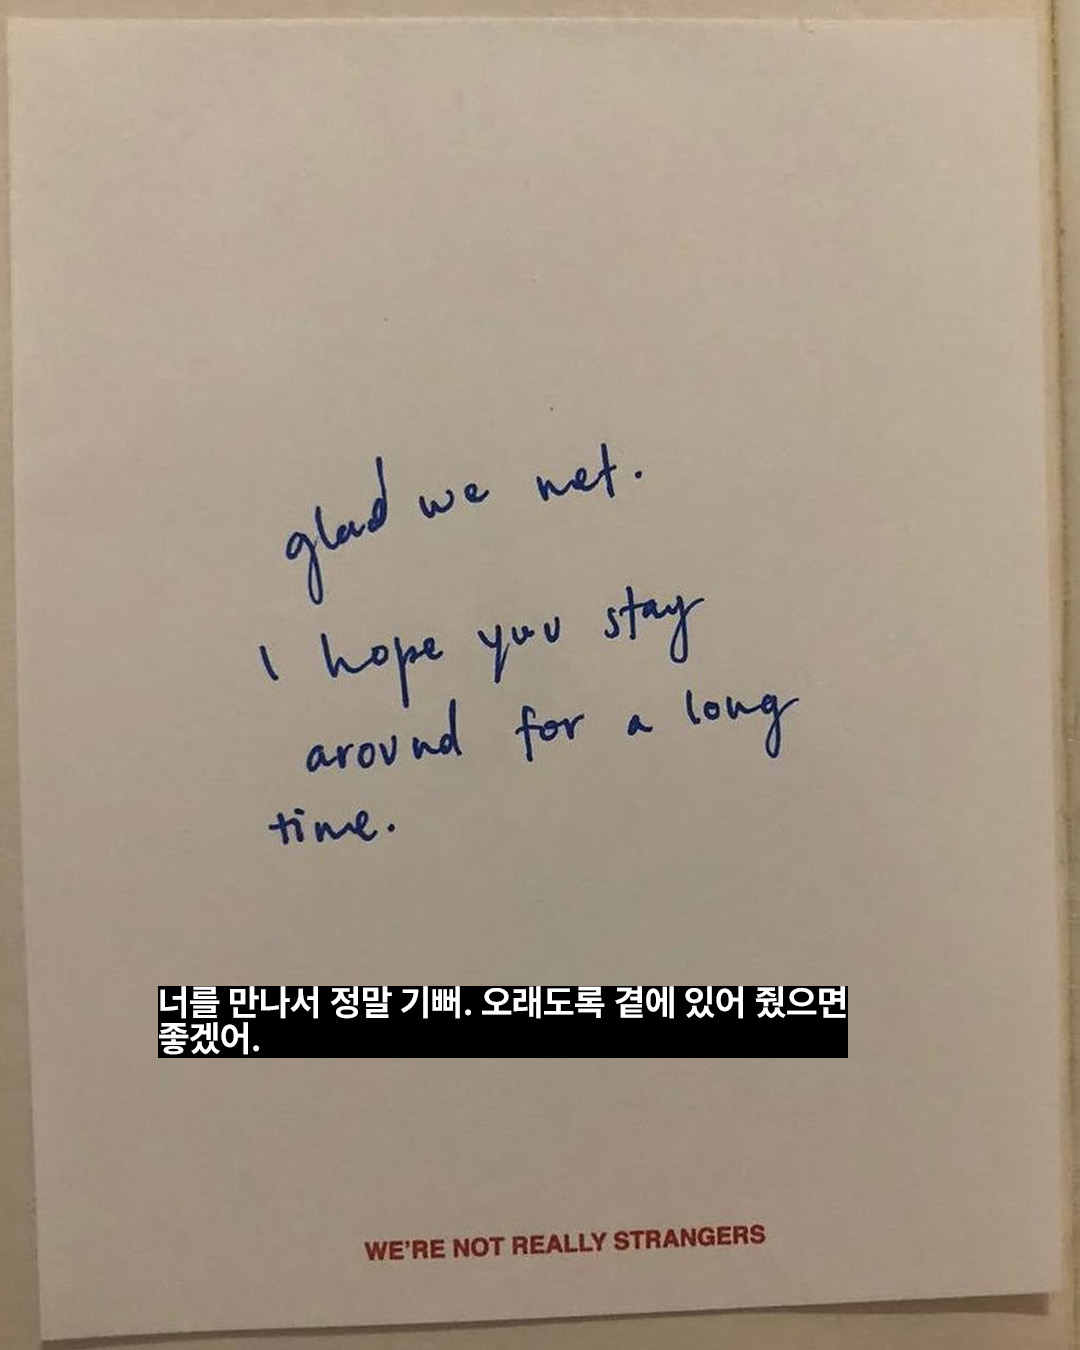 glad we met.
I hope you stay
around for a long
time.
너를 만나서 정말 기뻐. 오래도록 곁에 있어 줬으면
좋겠어.
WE'RE NOT REALLY STRANGERS